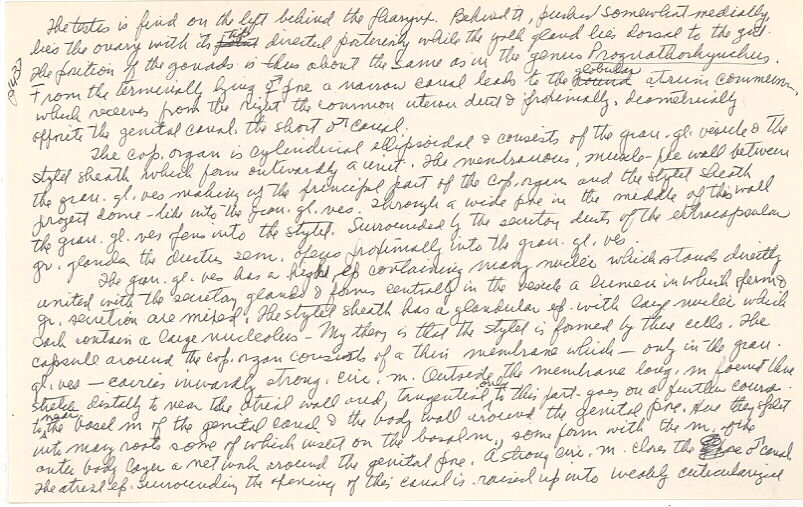 The testis is find on the left behind the pharynx. Behind it, pushed somewhat medially
lies the ovary with its tip directed posteriorly while the yolk gland lies dorsal to the gut.
The position of the gonads is thus about the same as in the genus Prognathorhynchus.
From the terminally lying ♂ pore a narrow canal leads to the globular atrium commune,
which receives from the right the common uterus duct & proximally, diametrically
opposite the genital canal, the short ♂ canal.
The cop. organ is cylindrical ellipsoidal & consists of the gran. gl. vesicle & the
stylet sheath which form outwardly a unit. The membranous, muscle-free wall between
the gran. gl. ves making up the principal part of the cop. organ and the stylet sheath
project dome-like into the gran. gl. ves. Through a wide pore in the middle of this wall
the gran. gl. ves opens into the stylet. Surrounded by the secretory ducts of the extracapsular
gr. glands the ductus sem. opens proximally into the gran. gl. ves.
The gran. gl. ves has a high ep containing many nuclei which stands directly
united with the secretory glands & forms centrally in the vesicle a lumen in which sperm &
gr. secretion are mixed. The stylet sheath has a glandular ep. with large nuclei which
each contain a large nucleolus - My theory is that the stylet is formed by these cells. The
capsule around the cop. organ consists of a thin membrane which - only in the gran.
gl. ves - carries inwardly strong, circ. m. Outside the membrane long. m found here
distally to near the atrial wall and, tangential to this part goes on a further course
to near the basal m of the genital canal & the body wall around the genital pore. Here they split
into many roots some of which insert on the basal m., some form with the m. of the
outer body layer a network around the genital pore. A strong circ. m. closes the ♂ canal.
The atrial ep. surrounding the opening of this canal is raised up into weakly cuticularized